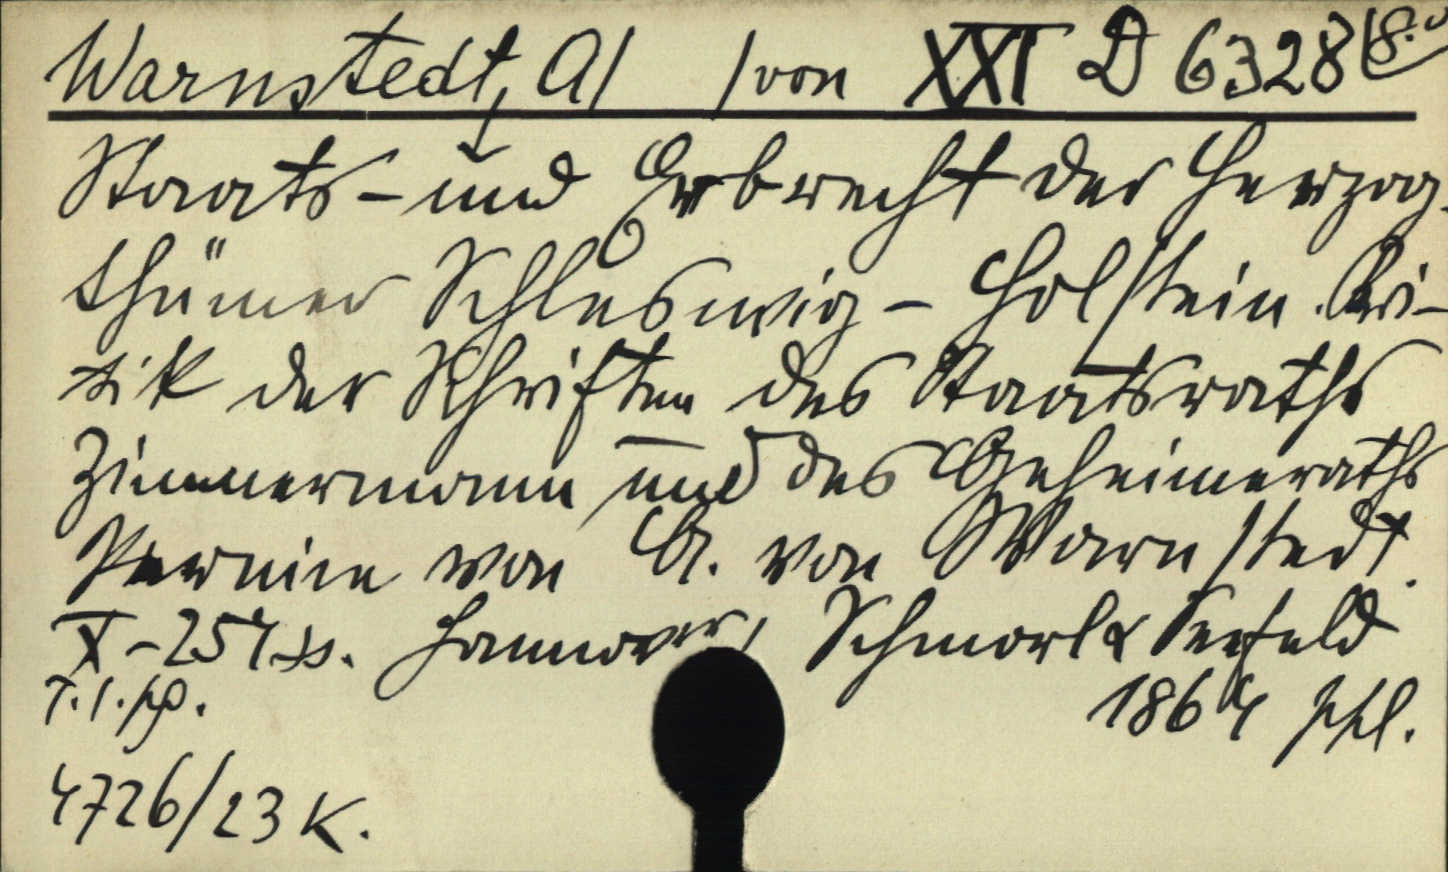 Warnstedt, A/ /von XXI D 6328 8.°
Staats- und Erbrecht der Herzog-
thümer Schleswig-Holstein. Kri-
tik der Schriften des Staatsraths
Zimmermann und des Geheimeraths
Pernice von A. von Warnstedt.
X-254 ss. Hannover, Schmorl & Seefeld
1864
4726/23 K.